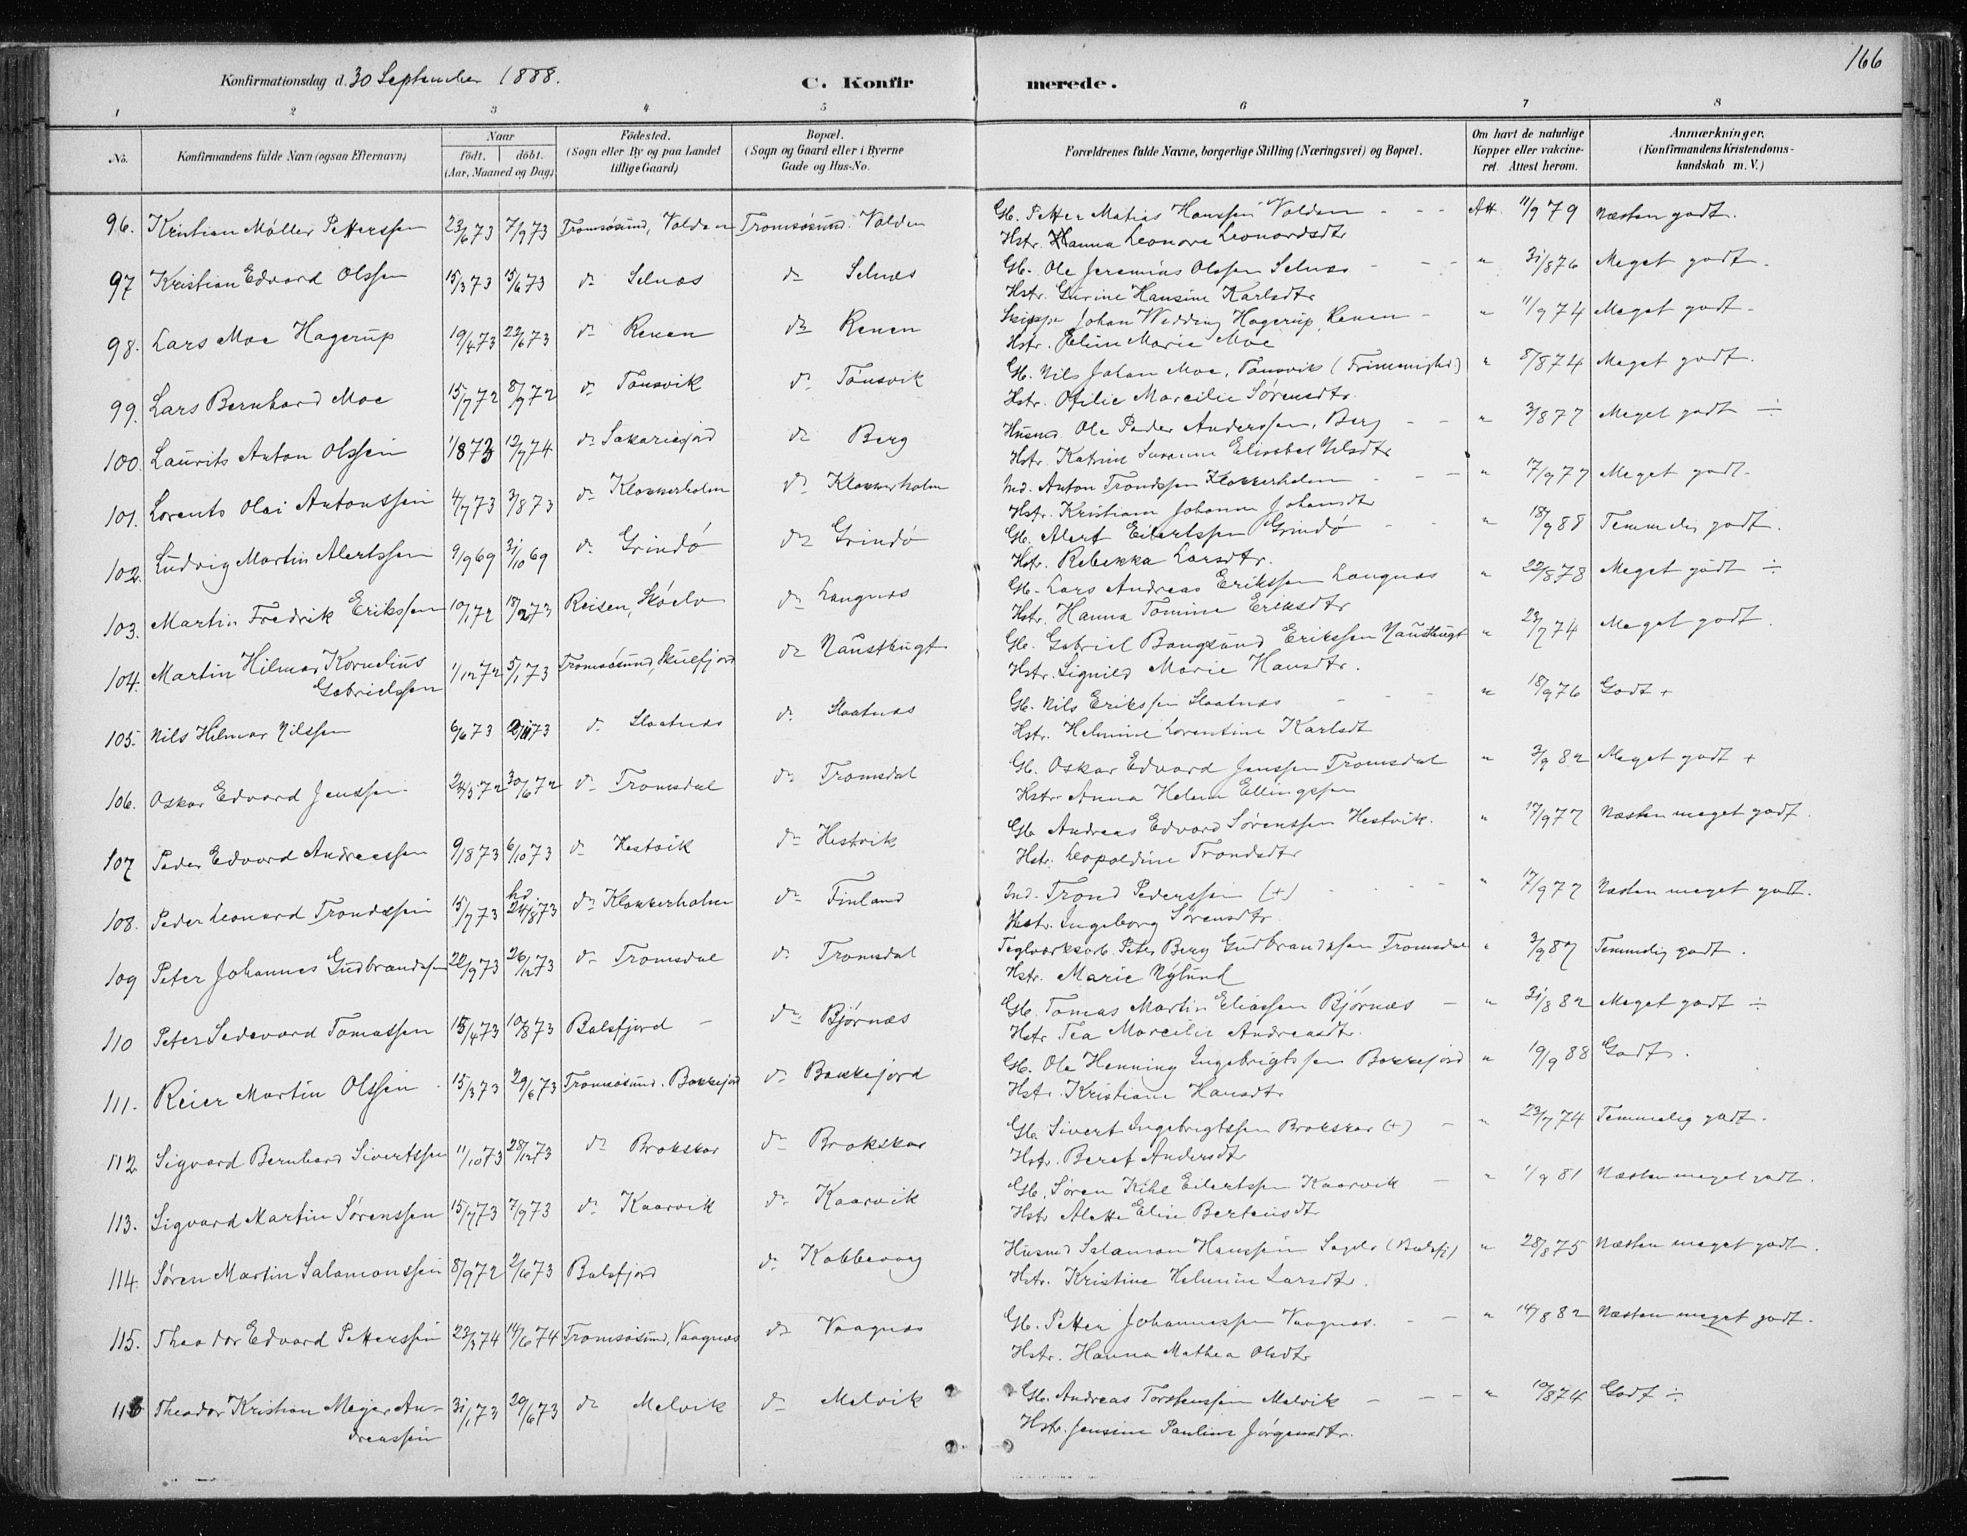 166
Konfirmationsdag d. 30 September 1888. C. Konfirmerede.
1 2 3 4 5 6 7 8
No. Konfirmandens fulde Navn (ogsaa Efternavn) Naar födt. döbt. (Aar, Maaned og Dag) Födested. (Sogn eller By og paa Landet tillige Gaard) Bopæl. (Sogn og Gaard eller i Byerne Gade og Hus-No. Forældrenes fulde Navne, borgerlige Stilling (Næringsvei) og Bopæl. Om havt de naturlige Kopper eller vakcineret. Attest herom. Anmærkninger. (Konfirmandens Kristendomskundskab m. V.)
96. Kristian Møller Petterssen 23/6 73 7/9 73 Tromsøsund, Valden Tromsøsund. Valden Gb. Petter Matias Hanssen Valden - - - Att. 11/9 79 Næsten godt.
Hstr. Hanna Leonore Leonardsdtr
97 Kristian Edvard Olssen 15/3 73 15/6 73 do Selnæs do Selnæs Gb. Ole Jeremias Olssen Selnæs - - - " 31/8 76 Meget godt.
Hstr. Gurine Hansine Karlsdtr
98. Lars Moe Hagerup 19/4 73 22/6 73 do Renen do Renen Skipper Johan Wedding Hagerup, Renen - " 11/9 74 Meget godt.
Hstr. Marie Moe
99. Lars Bernhard Moe 15/7 72 8/9 72 do Tønsvik do Tønsvik Gb. Nils Johan Moe, Tønsvik (Frimenighd.) " 8/8 74 Meget godt.
Hstr. Ofilie Marcilie Sørensdtr.
100. Laurits Anton Olssen 1/8 73 12/7 74 do Sakariefjord do Berg Husmd Ole Peder Anderssen, Berg - - " 3/8 77 Meget godt ÷
Hstr. Katrine Susanne Elisabet Nilsdtr
101. Lorents Olai Antonssen 4/7 73 3/8 73 do Klokkerholm do Klokkerholm Ind. Anton Trondssen Klokkerholm - - - " 17/9 77 Meget godt.
Hstr. Kristiane Johanne Johansdtr
102. Ludvig Martin Alertssen 9/9 69 31/10 69 do Grindø do Grindø Gb. Alert Eilertssen Grindø - - " 18/9 88 Temmelig godt.
Hstr. Rebekka Larsdtr.
103. Martin Fredrik Erikssen 10/1 72 18/2 73 Reisen, Skoelv do Langnæs Gb. Lars Andreas Erikssen Langnæs " 22/8 78 Meget godt ÷
Hstr. Hanna Tomine Eriksdtr
104. Martin Hilmar Kornelius 1/12 72 5/1 73 Tromsøsund, Skulfjord do Nausthugt Gb. Gabriel Bangsund Erikssen Nausthugt " 23/7 74 Meget godt.
Gabrielssen Hstr. Signild Marie Hansdtr.
105. Nils Hilmar Nilssen 6/6 73 73 do Slaatnæs do Slaatnæs Gb. Nils Erikssen Slaatnæs - - - " 18/9 76 Godt +
Hstr. Helmine Lorentine Karlsdt
106. Oskar Edvard Jenssen 24/3 72 30/6 72 do Tromsdal do Tromsdal Gb. Oskar Edvard Jenssen Tromsdal " 3/9 82 Meget godt +
Hstr. Anna Helene Ellingssen
107 Peder Edvard Andreassen 9/8 73 6/10 73 do Hestvik do Hestvik Gb. Andreas Edvard Sørenssen Hestvik. " 17/9 77 Næsten meget godt.
Hstr. Leopoldine Trondsdtr
108. Peder Leonard Trondssen 15/7 73 hd. 24/8 73 do Klokkerholm do Finland Ind. Trond Pederssen (+) - - - " 17/9 77 Næsten meget godt.
Hstr. Ingeborg Sørensdtr.
109 Peter Johannes Gudbrandssen 22/9 73 26/12 73 do Tromsdal do Tromsdal Teglværksarb. Peter Berg Gudbrandssen Tromsdal " 3/9 87 Temmelig godt.
Hstr. Marie Nylund
110 Peter Sedevard Tomassen 15/4 73 10/8 73 Balsfjord - do Bjørnæs Gb. Tomas Martin Eliassen Bjørnæs - " 31/8 82 Meget godt ÷
Hstr Tea Marcilie Andreasdtr.
111. Reier Martin Olssen 15/3 73 29/6 73 Tromsøsund. Bakkejord do Bakkejord Gb. Ole Henning Ingebrigtssen Bakkejord " 19/9 88 Godt.
Hstr. Kristiane Hansdtr
112 Sigvard Bernhard Sivertssen 11/10 73 28/12 73 do Brokskar do Brokskar Gb. Sivert Ingebrigtssen Brokskar (+) - " 23/7 74 Temmelig godt.
Hstr. Beret Andersdtr
113. Sigvard Martin Sørenssen 15/7 73 7/9 73 do Kaarvik do Kaarvik Gb. Søren Kihl Eilertssen Kaarvik - " 1/9 81 Næsten meget godt.
Hstr Alette Elise Berteusdtr
114. Søren Martin Salamonssen 8/9 72 2/6 73 Balsfjord do Kobbevaag Husmd Salamon Hanssen (Balsfj) " 28/8 75 Næsten meget godt.
Hstr. Kristine Helmine Larsdtr.
115. Theodor Edvard Petterssen 23/3 74 14/6 74 Tromsøsund, Vaagnæs do Vaagnæs Gb. Petter Johannessen Vaagnæs. - - " 14/8 82 Næsten meget godt.
Hstr. Hanna Mathea Olsdtr
116 Theodor Kristian Meyer An- 31/1 73 29/6 73 do Melvik do Melvik Gb. Andreas Torstenssen Melvik - - - " 10/8 74 Godt ÷
dreassen Hstr. Jensine Pauline Jørgensdtr.